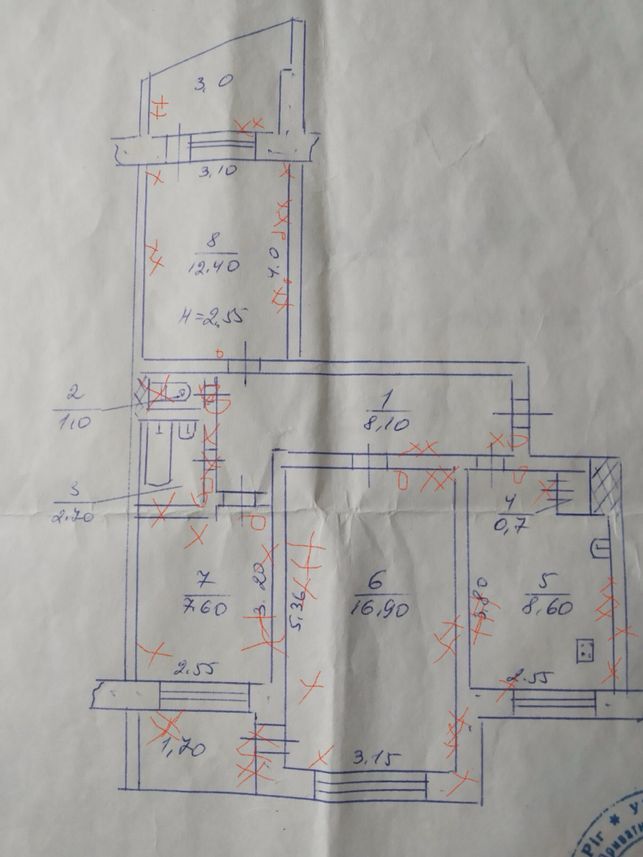 3,0
3,10
8
12.40
4.0
H=2,55
2
1,0
1
8,10
3
2.70
4
0,7
7
7.60
3.20
5,36
6
16,90
3,80
5
8.60
2.55
2.55
1,70
3.15
Ріг * У
Приват